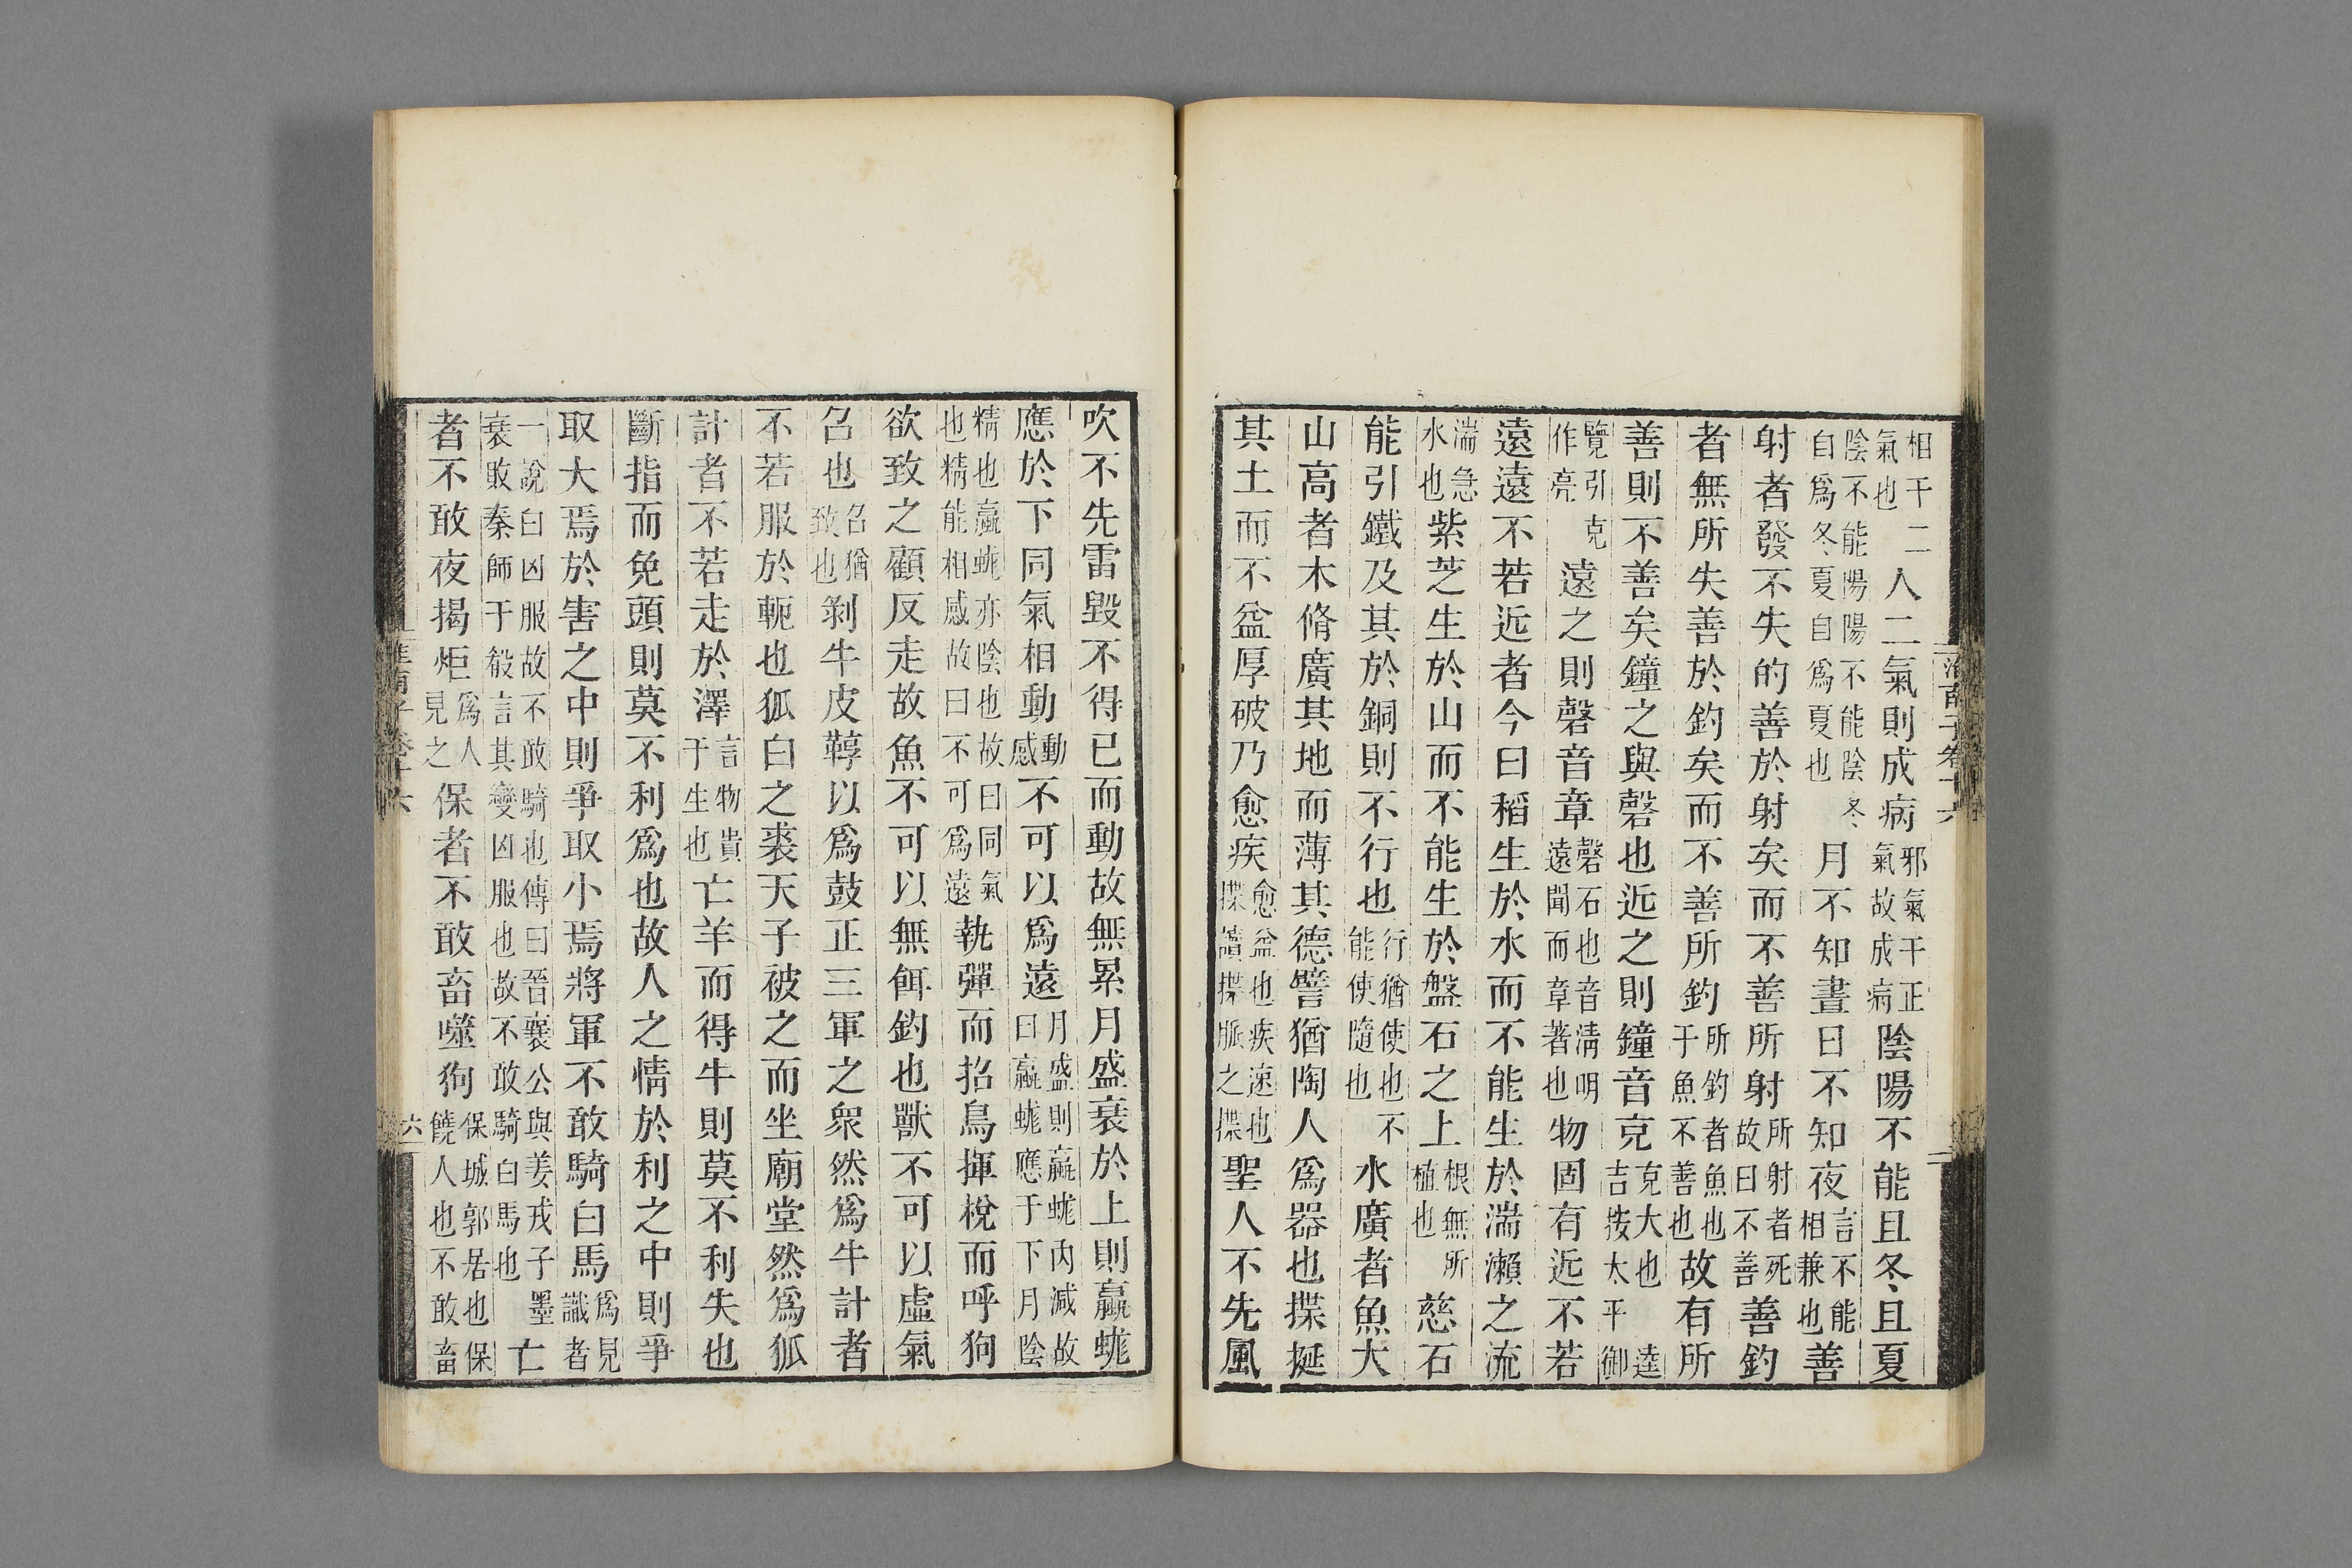 淮南子卷十六
相干二氣也人二氣則成病邪氣干正氣故成病陰陽不能且冬且夏
陰不能陽陽不能陰冬自爲冬夏自爲夏也月不知晝日不知夜言不能相兼也善
射者發不失的善於射矣而不善所射所射者死故曰不善善釣
者無所失善於釣矣而不善所釣所釣者魚也于魚不善也故有所
善則不善矣鐘之與磬也近之則鐘音克克大也逵吉按太平御
覽引克作亮遠之則磬音章磬石也音清明遠聞而章著也物固有近不若
遠遠不若近者今曰稻生於水而不能生於湍瀨之流
湍急水也紫芝生於山而不能生於盤石之上根無所植也慈石
能引鐵及其於銅則不行也行猶使也不能使隨也水廣者魚大
山高者木脩廣其地而薄其德譬猶陶人爲器也揲挻
其土而不益厚破乃愈疾愈益也疾速也揲讀揲脈之揲聖人不先風
吹不先雷毀不得已而動故無累月盛衰於上則蠃蛖
應於下同氣相動動感不可以爲遠月盛則蠃蛖內減故曰蠃蛖應于下月陰
精也蠃蛖亦陰也故曰同氣也精能相感故曰不可爲遠執彈而招鳥揮梲而呼狗
欲致之顧反走故魚不可以無餌釣也獸不可以虛氣
召也召猶致也剝牛皮鞟以爲鼓正三軍之衆然爲牛計者
不若服於軛也狐白之裘天子被之而坐廟堂然爲狐
計者不若走於澤言物貴于生也亡羊而得牛則莫不利失也
斷指而免頭則莫不利爲也故人之情於利之中則爭
取大焉於害之中則爭取小焉將軍不敢騎白馬爲見識者
一說白凶服故不敢騎也傳曰晉襄公與姜戎子墨衰敗秦師于殽言其變凶服也故不敢騎白馬也亡
者不敢夜揭炬爲人見之保者不敢畜噬狗保城郭居也保饒人也不敢畜
淮南子卷十六
六